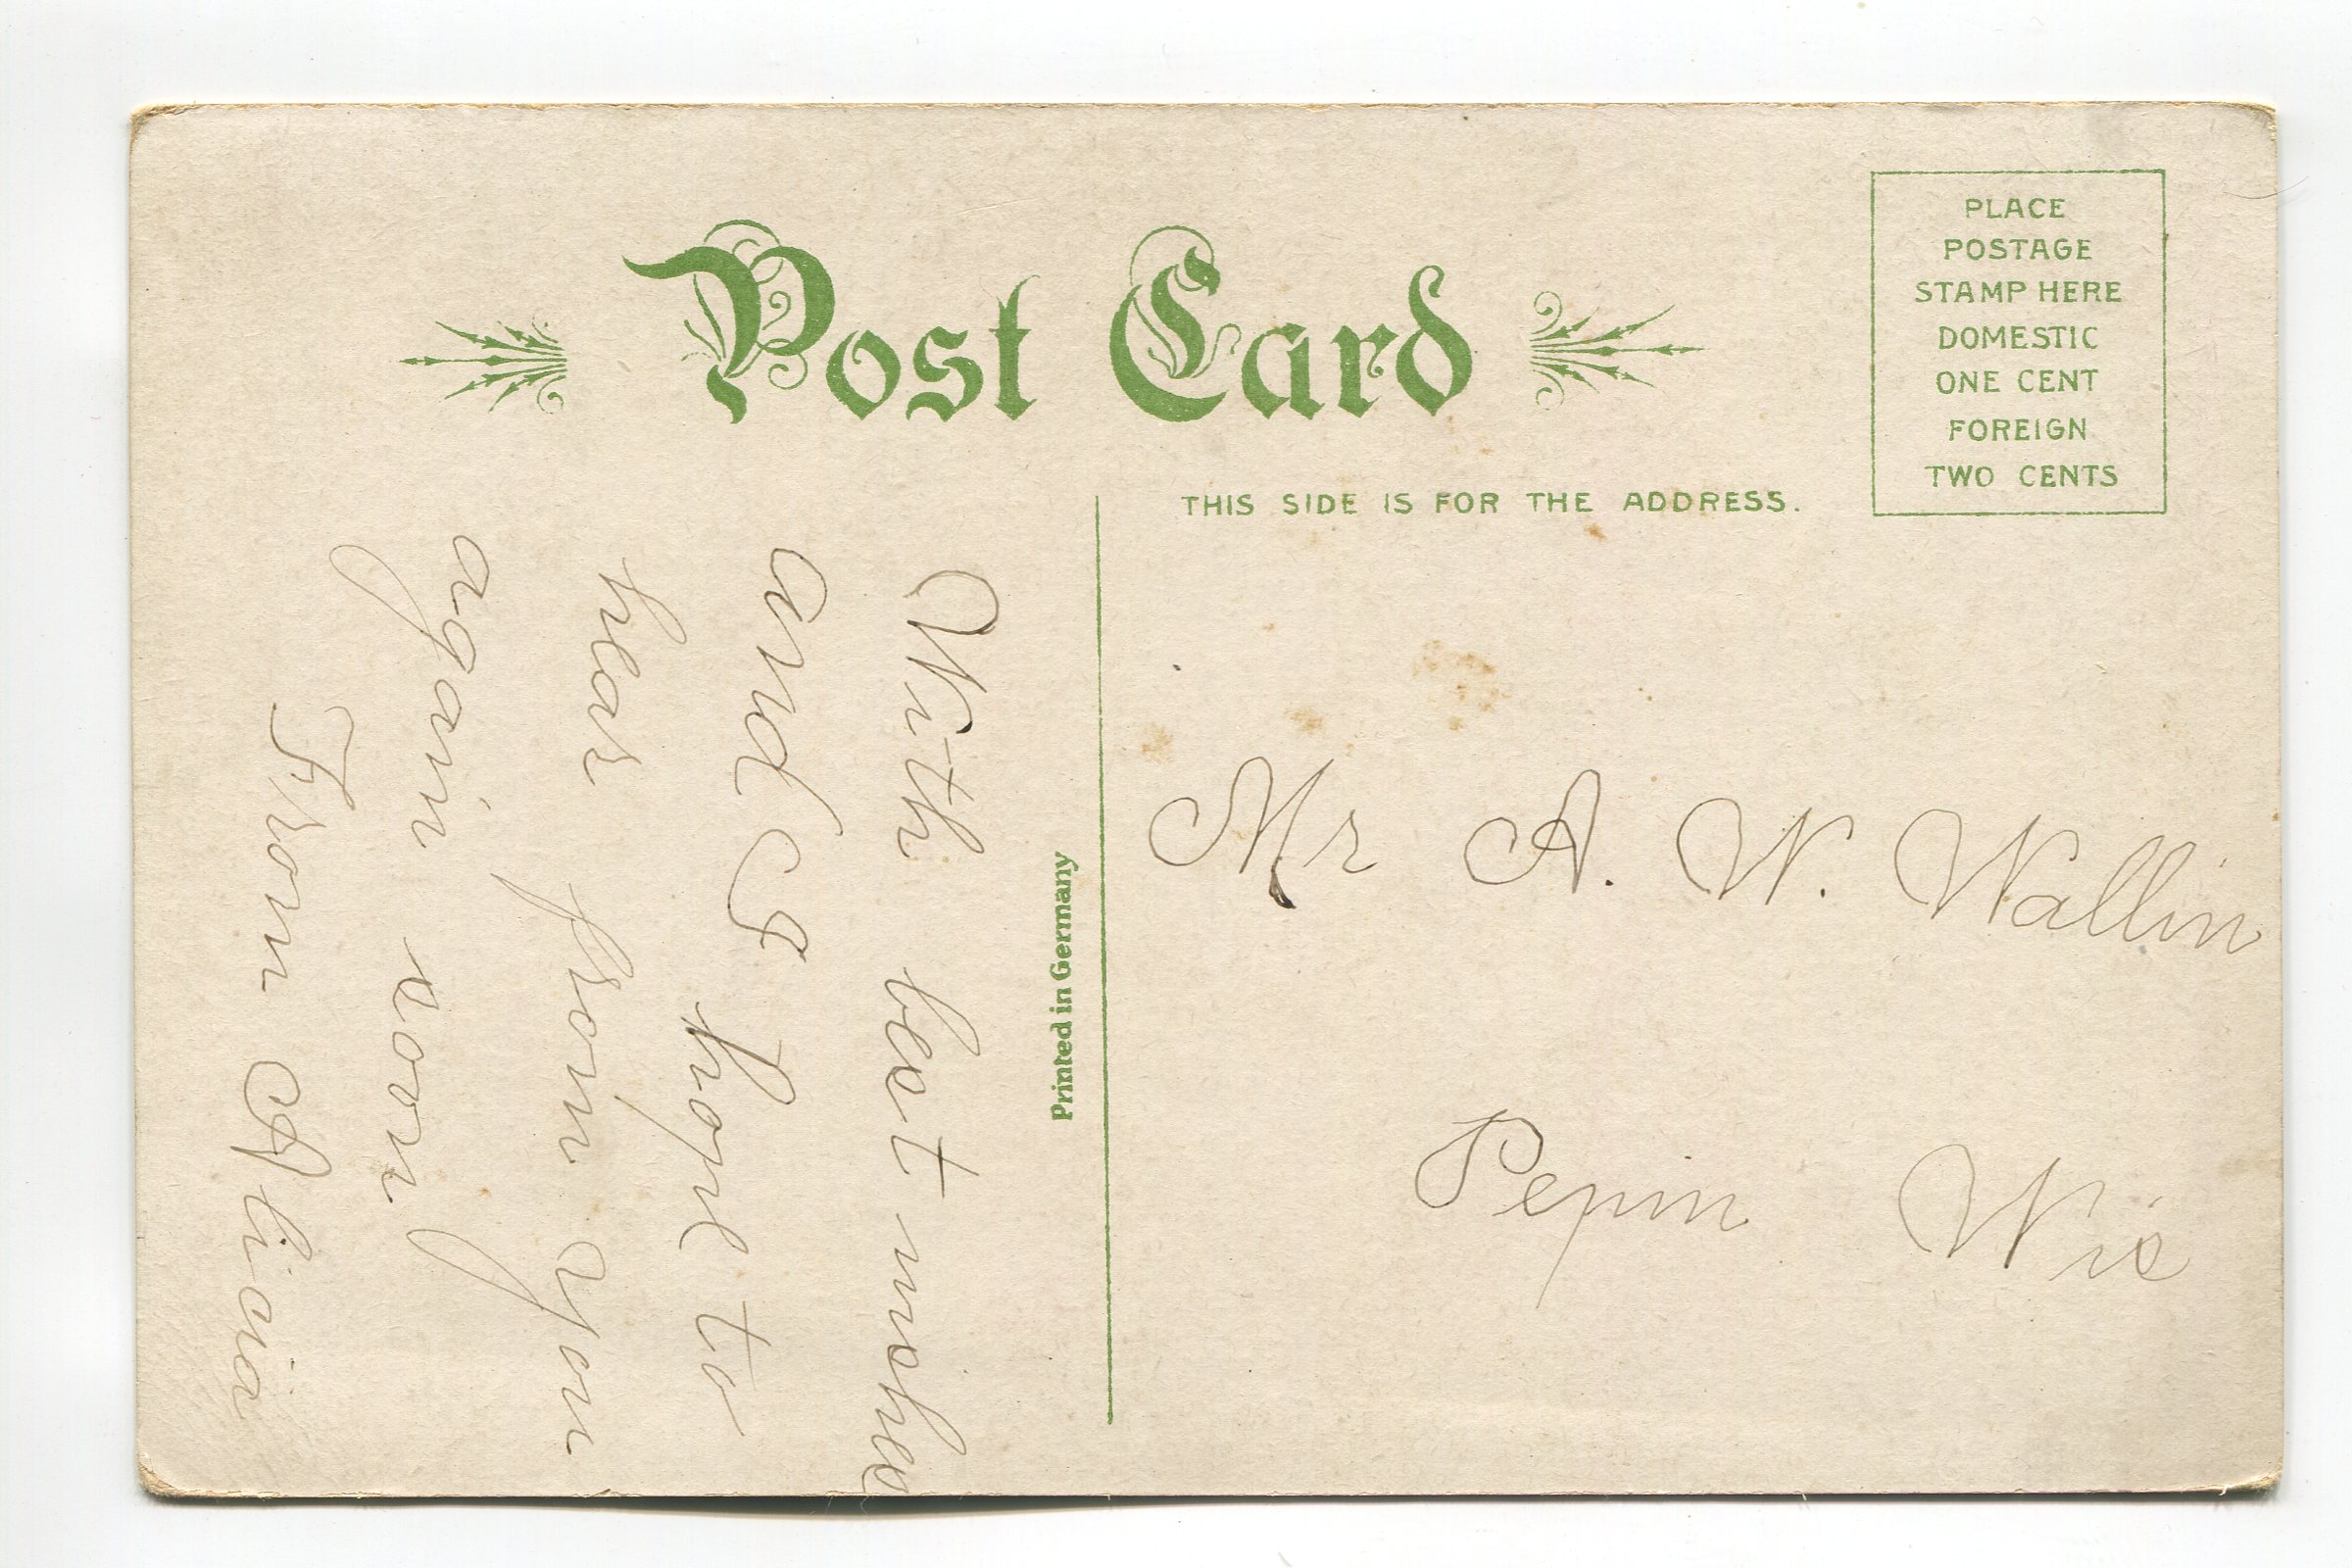 Post Card
PLACE
POSTAGE
STAMP HERE
DOMESTIC
ONE CENT
FOREIGN
TWO CENTS
THIS SIDE IS FOR THE ADDRESS.
With best wishes
and I hope to
hear from you
again soon
From Alicia
Printed in Germany
Mr A. W. Wallin
Pepin Wis